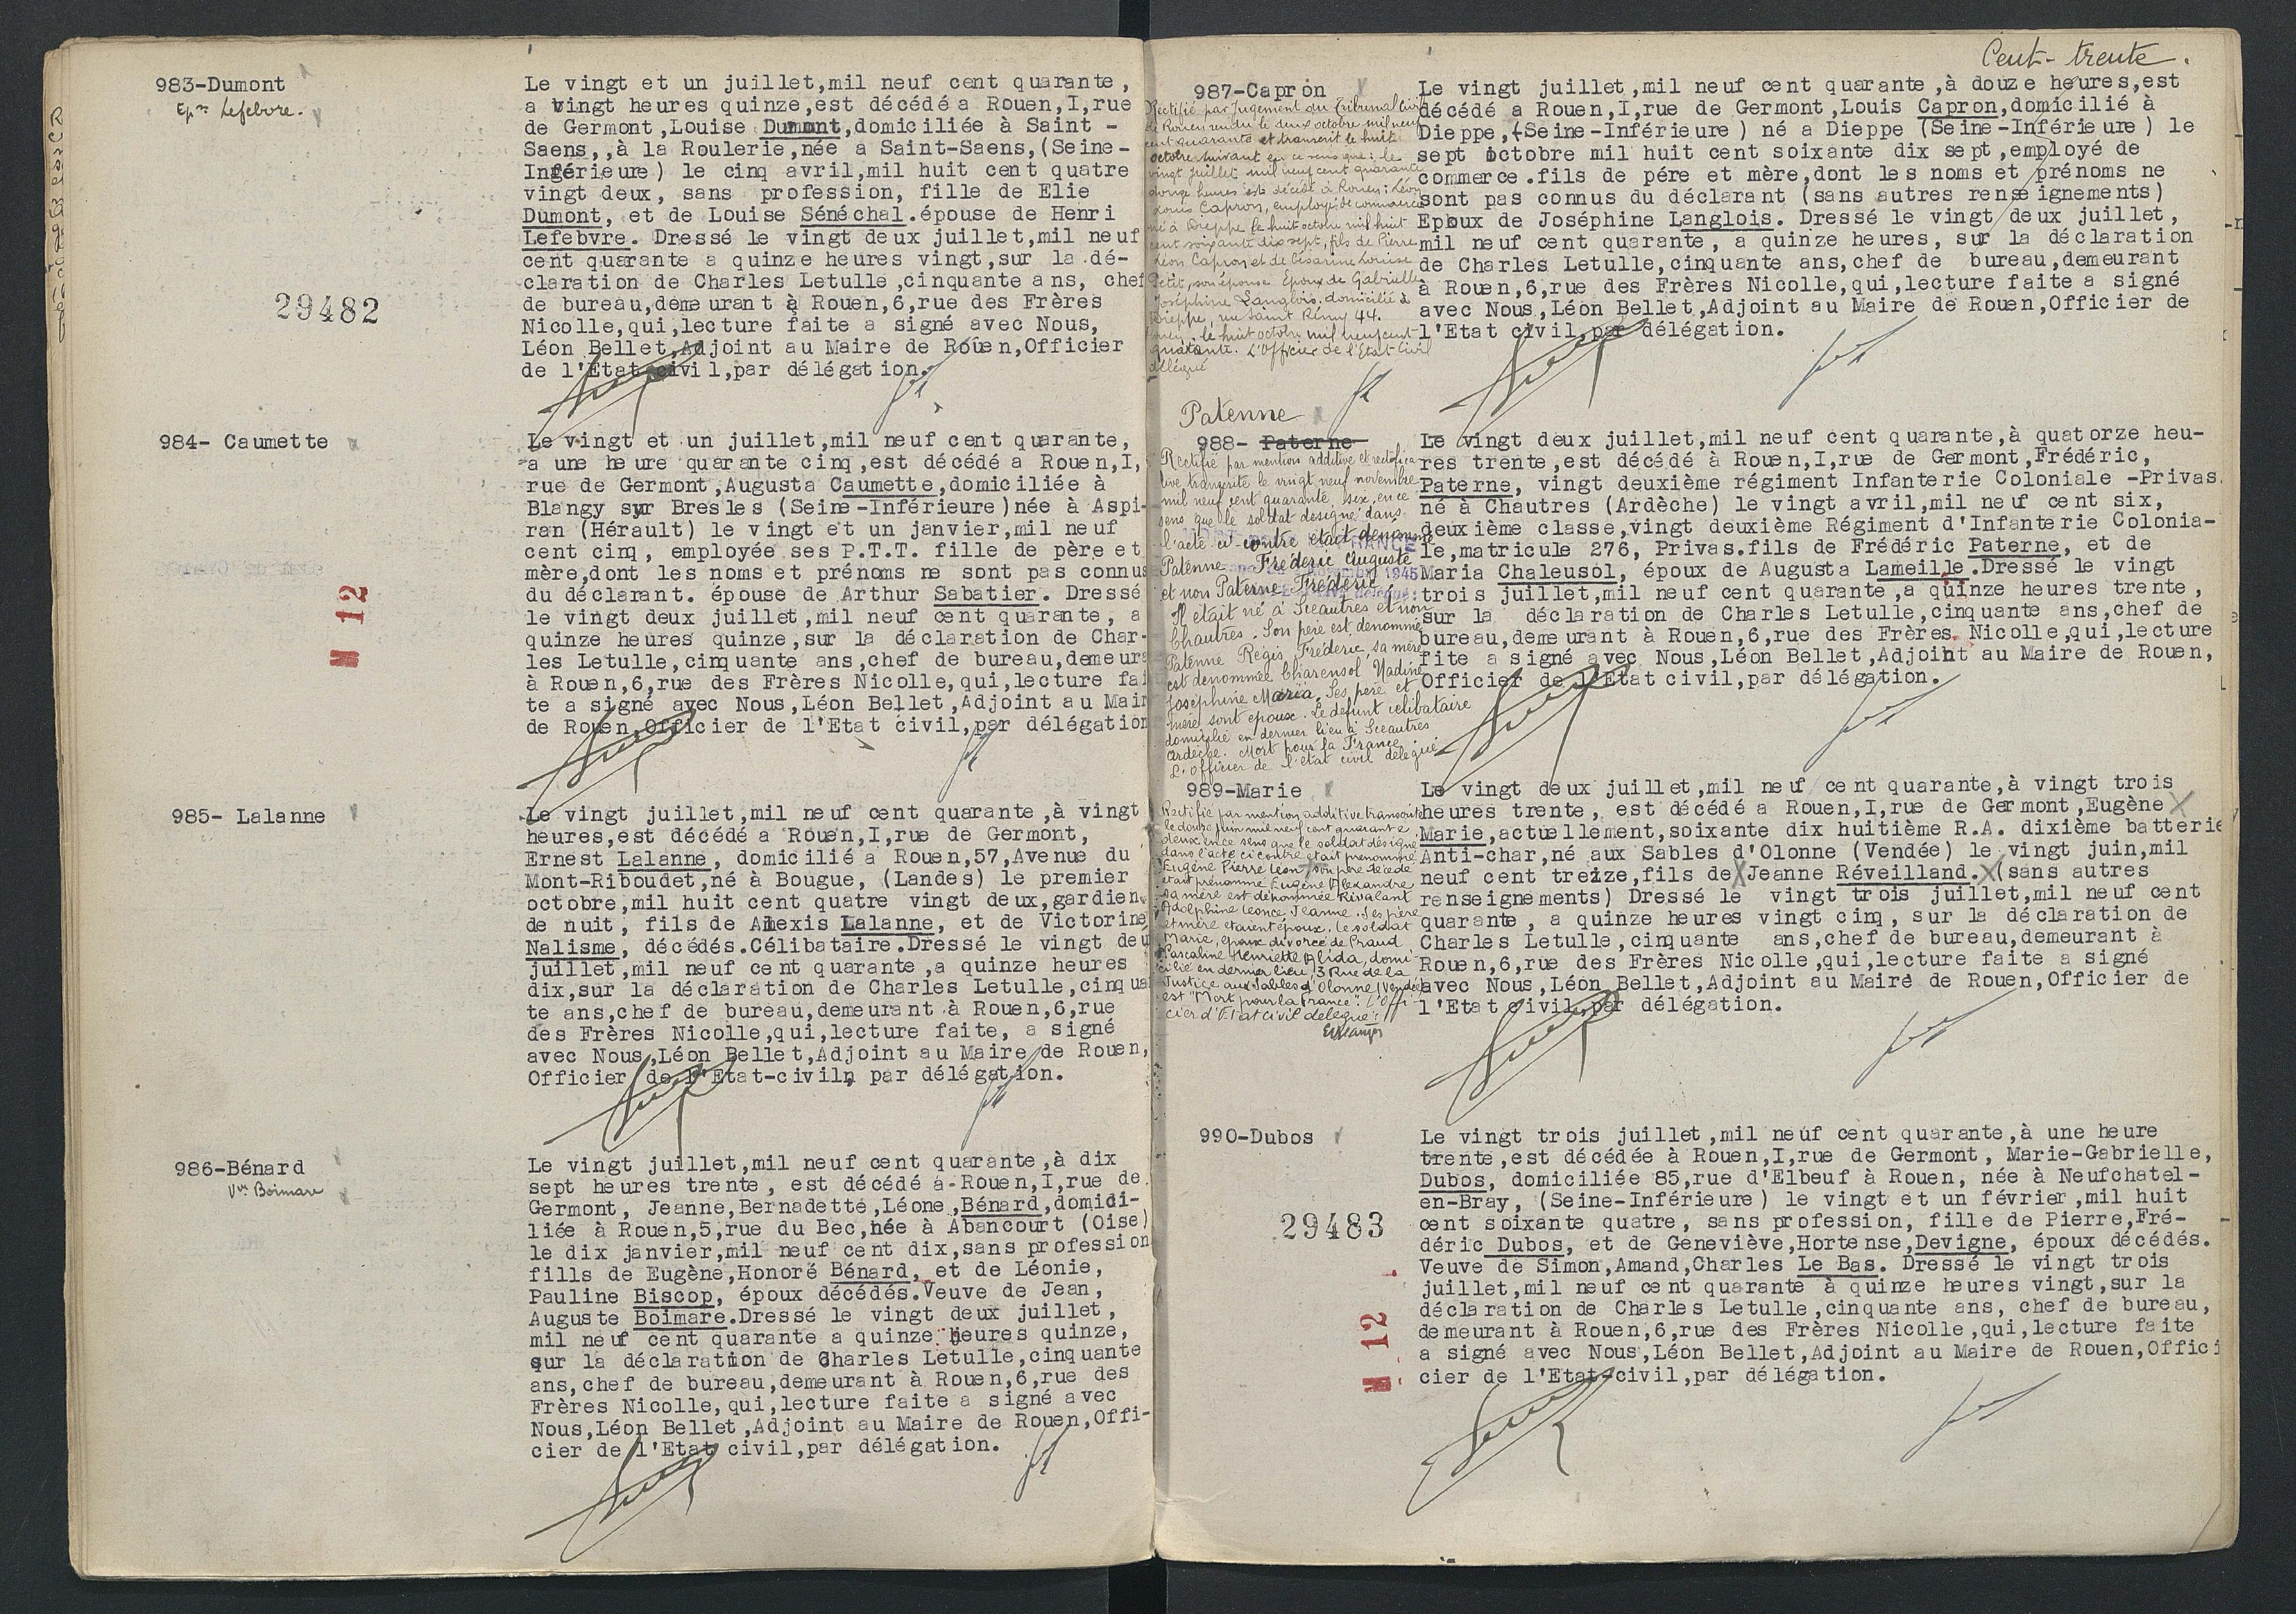 983-Dumont
Epse Lefebvre.
Le vingt et un juillet,mil neuf cent quarante,
a vingt heures quinze,est décédé a Rouen,I,rue
de Germont,Louise Dumont,domiciliée à Saint -
Saens,,à la Roulerie,née a Saint-Saens,(Seine-
Inférieure) le cinq avril,mil huit cent quatre
vingt deux, sans profession, fille de Elie
Dumont, et de Louise Sénéchal.épouse de Henri
Lefebvre. Dressé le vingt deux juillet,mil neuf
cent quarante a quinze heures vingt,sur la dé-
claration de Charles Letulle,cinquante ans, chef
de bureau,demeurant à Rouen,6,rue des Frères
Nicolle,qui,lecture faite a signé avec Nous,
Léon Bellet,Adjoint au Maire de Rouen,Officier
de l'Etat civil,par délégation.
29482
984- Caumette
Le vingt et un juillet,mil neuf cent quarante,
a une heure quarante cinq,est décédé a Rouen,I,
rue de Germont,Augusta Caumette,domiciliée à
Blangy syr Bresles (Seine-Inférieure)née à Aspi-
ran (Hérault) le vingt et un janvier,mil neuf
cent cinq, employée ses P.T.T. fille de père et
mère,dont les noms et prénoms ne sont pas connus
du déclarant. épouse de Arthur Sabatier. Dressé
le vingt deux juillet,mil neuf cent quarante, a
quinze heures quinze,sur la déclaration de Char-
les Letulle,cinquante ans,chef de bureau,demeura
à Rouen,6,rue des Frères Nicolle,qui,lecture fai
te a signé avec Nous,Léon Bellet,Adjoint au Mair
de Rouen,Officier de l'Etat civil,par délégation
M 12
985- Lalanne
Le vingt juillet,mil neuf cent quarante,à vingt
heures,est décédé a Rouen,I,rue de Germont,
Ernest Lalanne, domicilié a Rouen,57,Avenue du
Mont-Riboudet,né à Bougue, (Landes) le premier
octobre,mil huit cent quatre vingt deux,gardien
de nuit, fils de Alexis Lalanne, et de Victorine
Nalisme, décédés.Célibataire.Dressé le vingt deu
juillet,mil neuf cent quarante,a quinze heures
dix,sur la déclaration de Charles Letulle,cinqua
te ans,chef de bureau,demeurant à Rouen,6,rue
des Frères Nicolle,qui,lecture faite, a signé
avec Nous,Léon Bellet,Adjoint au Maire de Rouen,
Officier de l'Etat-civil, par délégation.
986-Bénard
Vve Boimare
Le vingt juillet,mil neuf cent quarante,à dix
sept heures trente, est décédé a-Rouen,I,rue de
Germont, Jeanne,Bernadette,Léone,Bénard,domici-
liée à Rouen,5,rue du Bec,née à Abancourt (Oise)
le dix janvier,mil neuf cent dix,sans profession
fills de Eugène,Honoré Bénard, et de Léonie,
Pauline Biscop, époux décédés.Veuve de Jean,
Auguste Boimare.Dressé le vingt deux juillet,
mil neuf cent quarante a quinze heures quinze,
sur la déclaration de Charles Letulle,cinquante
ans,chef de bureau,demeurant à Rouen,6,rue des
Frères Nicolle,qui,lecture faite a signé avec
Nous,Léon Bellet,Adjoint au Maire de Rouen,Offi-
cier de l'Etat civil,par délégation.
Cent-trente.
987-Capron
Rectifié par Jugement du Tribunal Civil
de Rouen rendu le deux octobre mil neuf
cent quarante et transcrit le huit
octobre suivant en ce sens que: le
vingt juillet mil neuf cent quarante
douze heures est décédé à Rouen: Léon
Louis Capron, employé de commerce
né à Dieppe le huit octobre mil huit
cent soixante dix sept, fils de Pierre
Léon Capron et de Césarine Louise
Petit, son épouse. Epoux de Gabrielle
Joséphine Langlois, domicilié à
Dieppe, rue Saint Rémy 44.
Rouen, le huit octobre mil neuf cent
quarante. L'Officier de l'Etat Civil
délégué
Le vingt juillet,mil neuf cent quarante,à douze heures,est
décédé a Rouen,I,rue de Germont,Louis Capron,domicilié à
Dieppe,(Seine-Inférieure) né a Dieppe (Seine-Inférieure) le
sept octobre mil huit cent soixante dix sept,employé de
commerce.fils de pére et mère,dont les noms et prénoms ne
sont pas connus du déclarant (sans autres renseignements)
Epoux de Joséphine Langlois. Dressé le vingt deux juillet,
mil neuf cent quarante, a quinze heures, sur la déclaration
de Charles Letulle,cinquante ans,chef de bureau,demeurant
à Rouen,6,rue des Frères Nicolle,qui,lecture faite a signé
avec Nous,Léon Bellet,Adjoint au Maire de Rouen,Officier de
l'Etat civil,par délégation.
Patenne
988- Paterne
Rectifié par mention additive et rectifica-
tive transcrite le vingt neuf novembre
mil neuf cent quarante six, en ce
sens que le soldat désigné dans
l'acte ci contre était dénommé
Patenne Frédéric Auguste
et non Paterne Frédéric
Il était né à Sceautres et non
Chautres. Son père est dénommé
Patenne Régis Frédéric, sa mère
est dénommée Charensol Nadine
Joséphine Maria. Ses père et
mère sont époux. Le défunt célibataire
domicilié en dernier lieu à Sceautres
Ardèche. Mort pour la France
L'officier de l'état civil délégué
Le vingt deux juillet,mil neuf cent quarante,à quatorze heu-
res trente,est décédé à Rouen,I,rue de Germont,Frédéric,
Paterne, vingt deuxième régiment Infanterie Coloniale -Privas.
né à Chautres (Ardèche) le vingt avril,mil neuf cent six,
deuxième classe,vingt deuxième Régiment d'Infanterie Colonia-
le,matricule 276, Privas.fils de Frédéric Paterne, et de
Maria Chaleusol, époux de Augusta Lameille.Dressé le vingt
trois juillet,mil neuf cent quarante,a quinze heures trente,
sur la déclaration de Charles Letulle,cinquante ans,chef de
bureau,demeurant à Rouen,6,rue des Frères Nicolle,qui,lecture
fite a signé avec Nous,Léon Bellet,Adjoint au Maire de Rouen,
Officier de l'Etat civil,par délégation.
989-Marie
Rectifié par mention additive transcrite
le douze juin mil neuf cent quarante
deux, en ce sens que le soldat désigné
dans l'acte ci contre était prénommé
Eugène Pierre Léon, son père décédé
était prénommé Eugène Alexandre
sa mère est dénommée Rivalant
Adolphine Léonce Jeanne. Ses père
et mère étaient époux. Le soldat
Marie, époux divorcé de Praud
Pascaline Henriette Alida, domi-
cilié en dernier lieu, 3 Rue de la
Justice aux Sables d'Olonne (Vendée)
est "Mort pour la France". L'Offi-
cier d'Etat civil délégué:
Le vingt deux juillet,mil neuf cent quarante,à vingt trois
heures trente, est décédé a Rouen,I,rue de Germont,Eugène
Marie,actuellement,soixante dix huitième R.A. dixième batterie
Anti-char,né aux Sables d'Olonne (Vendée) le vingt juin,mil
neuf cent treize,fils de Jeanne Réveilland. (sans autres
renseignements) Dressé le vingt trois juillet,mil neuf cent
quarante, a quinze heures vingt cinq, sur la déclaration de
Charles Letulle,cinquante ans,chef de bureau,demeurant à
Rouen,6,rue des Frères Nicolle,qui,lecture faite a signé
avec Nous,Léon Bellet,Adjoint au Maire de Rouen,Officier de
l'Etat civil,par délégation.
990-Dubos
Le vingt trois juillet,mil neuf cent quarante,à une heure
trente,est décédée à Rouen,I,rue de Germont, Marie-Gabrielle,
Dubos, domiciliée 85,rue d'Elbeuf à Rouen, née à Neufchatel-
en-Bray, (Seine-Inférieure) le vingt et un février,mil huit
cent soixante quatre, sans profession, fille de Pierre,Fré-
déric Dubos, et de Geneviève,Hortense,Devigne, époux décédés.
Veuve de Simon,Amand,Charles Le Bas. Dressé le vingt trois
juillet,mil neuf cent quarante à quinze heures vingt,sur la
déclaration de Charles Letulle,cinquante ans, chef de bureau,
demeurant à Rouen,6,rue des Frères Nicolle,qui,lecture faite
a signé avec Nous,Léon Bellet,Adjoint au Maire de Rouen,Offici
cier de l'Etat-civil,par délégation.
29483
M 12